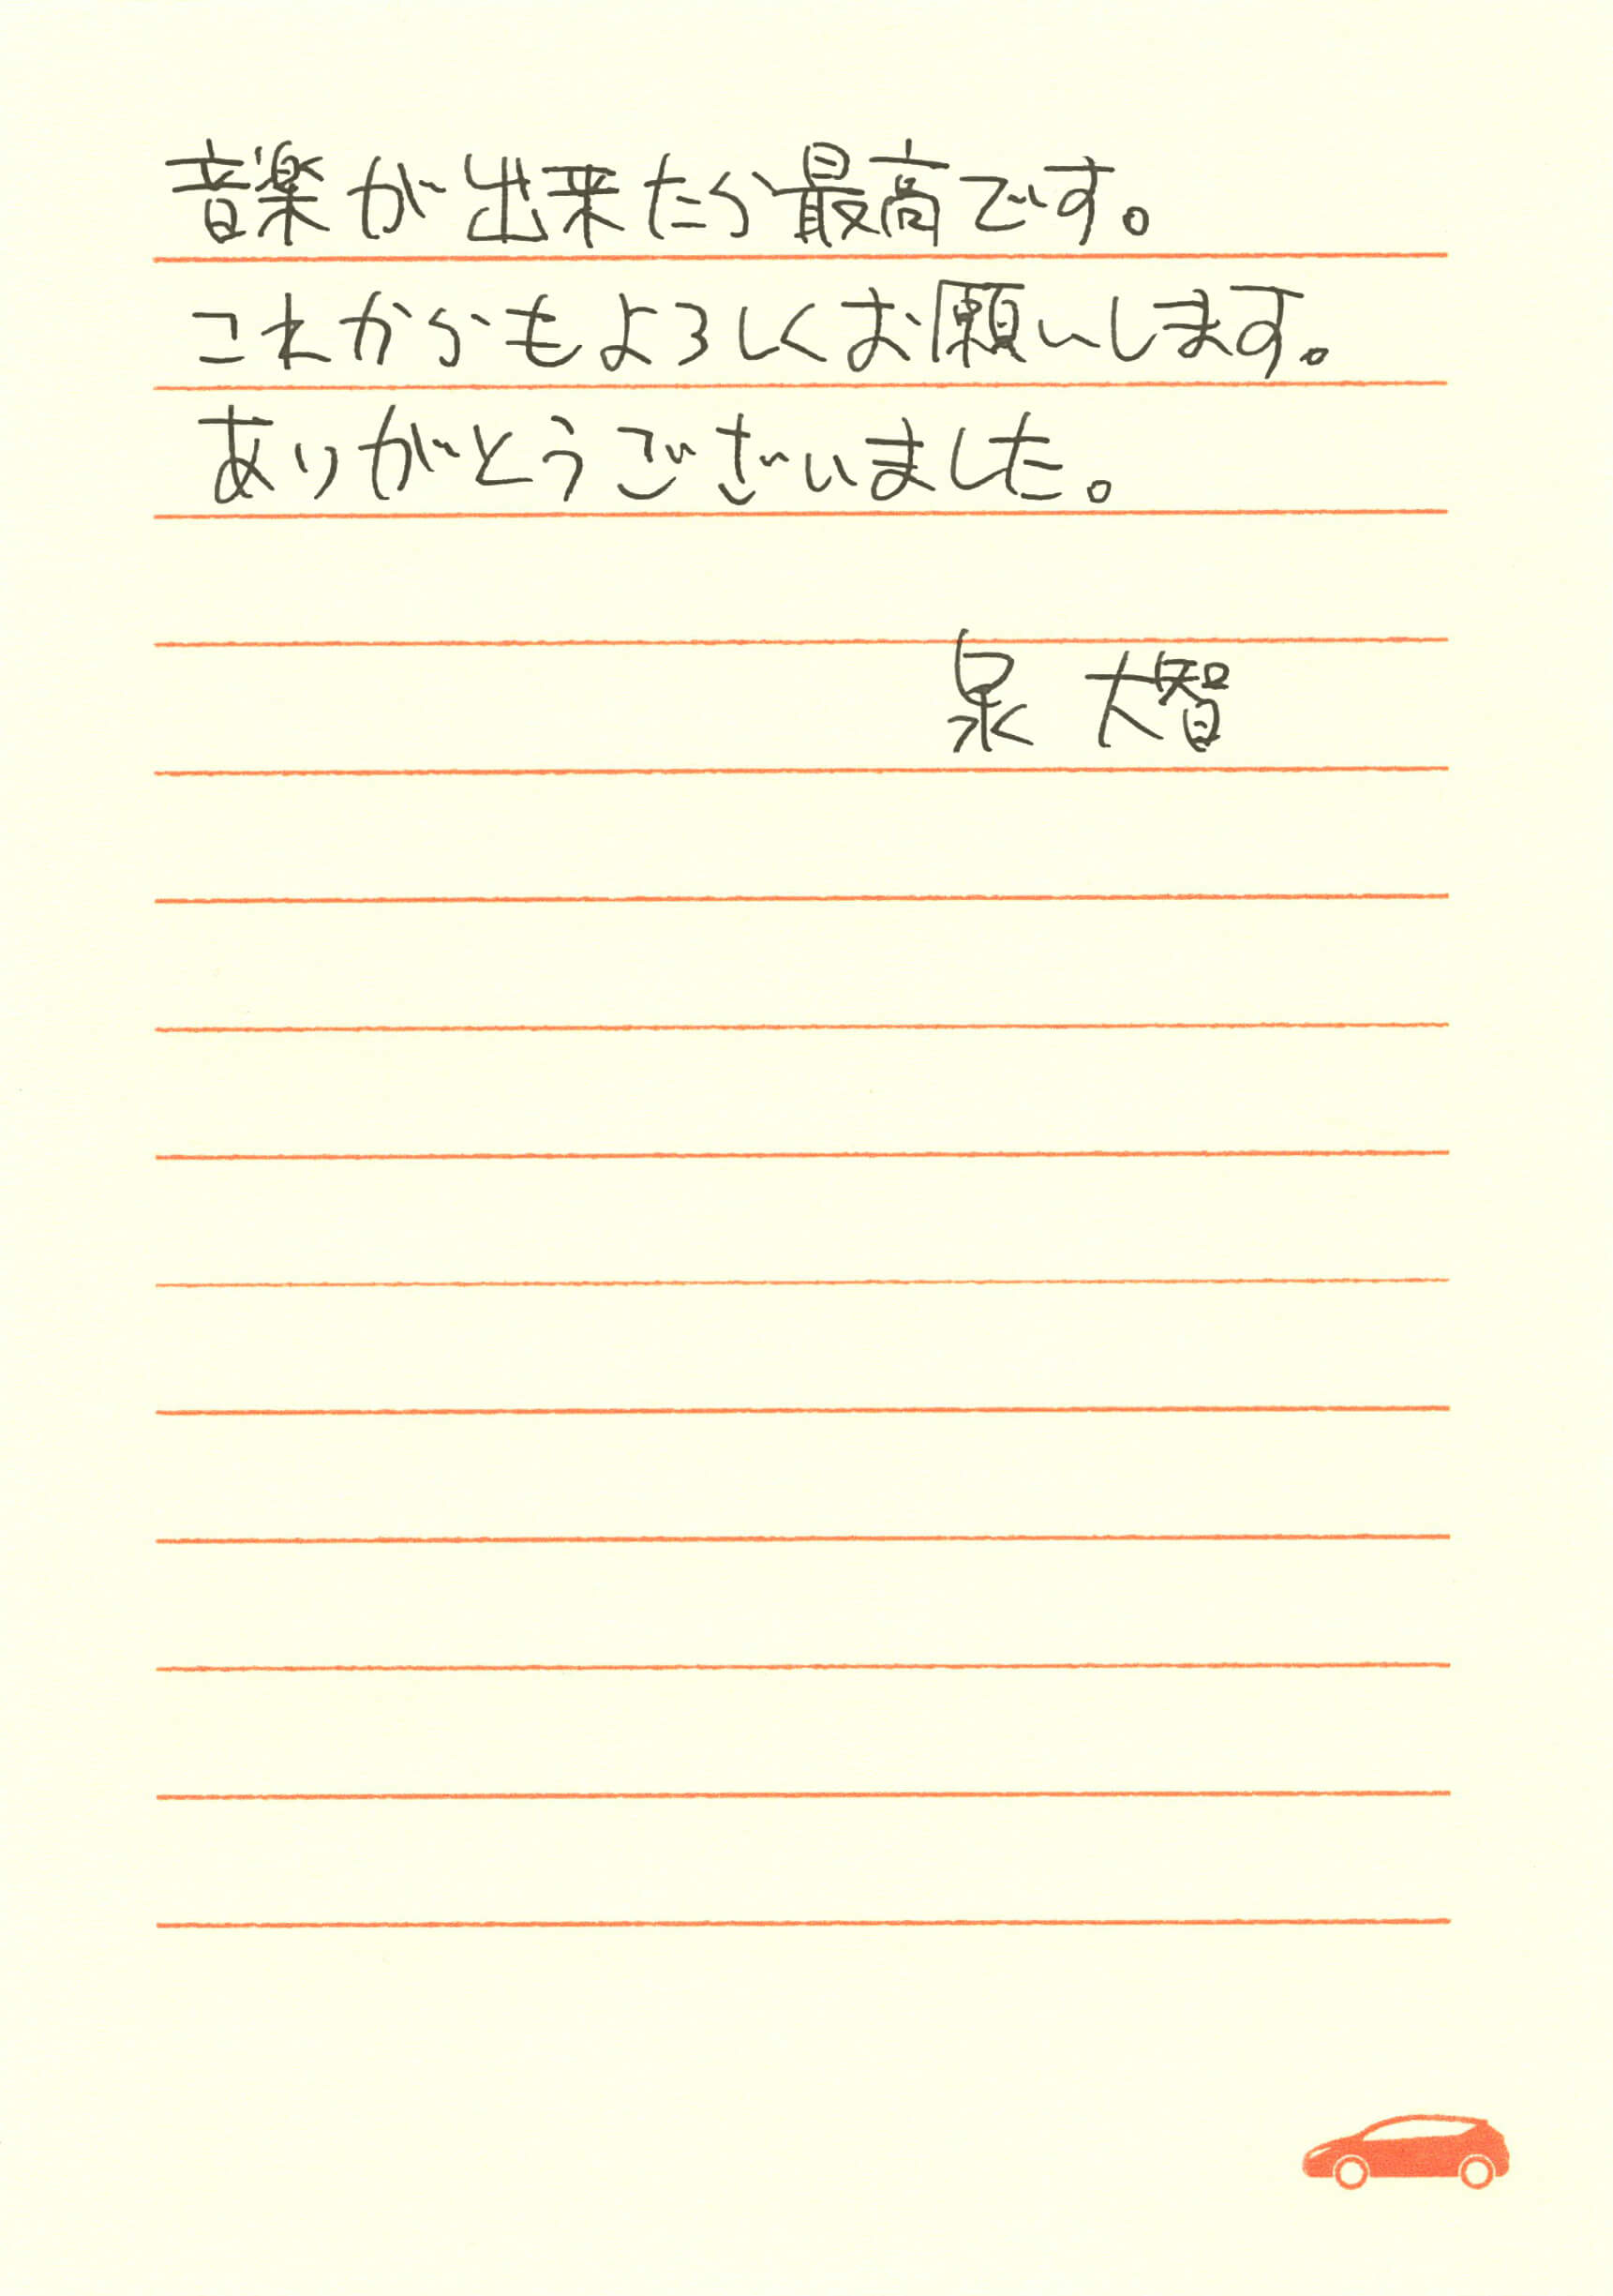 音楽が出来たら最高です。
これからもよろしくお願いします。
ありがとうございました。
泉 大智